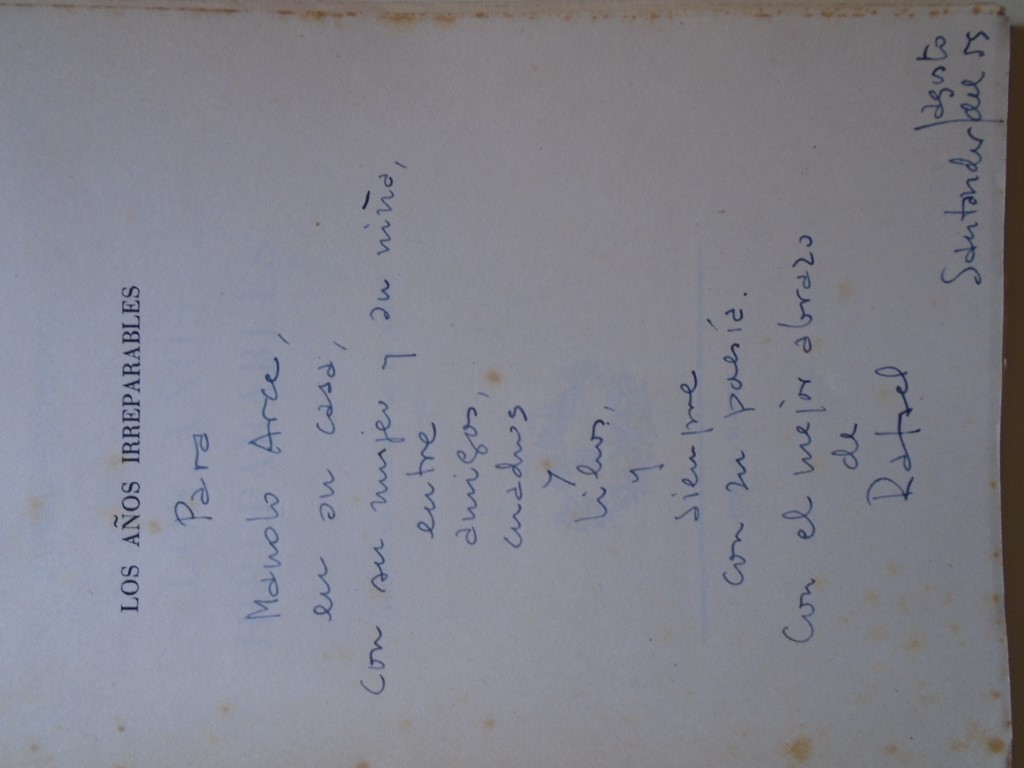 LOS AÑOS IRREPARABLES
Para
Manolo Arce,
en su casa,
con su mujer y su niña,
entre
amigos,
cuadros
y
libros,
y
siempre
con su poesía.
Con el mejor abrazo
de
Rafael
Santander/agosto
del 55